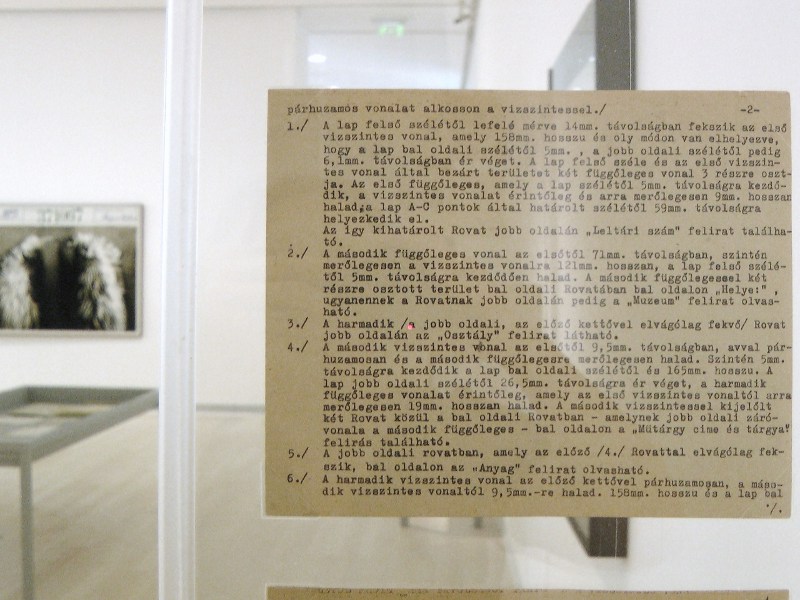 párhuzamos vonalat alkosson a vizszintessel./ -2-
1./ A lap felső szélétől lefelé mérve 14mm. távolságban fekszik az első
vizszintes vonal, amely 158mm. hosszu és oly módon van elhelyezve,
hogy a lap bal oldali szélétől 5mm. , a jobb oldali szélétől pedig
6,1mm. távolságban ér véget. A lap felső széle és az első vizszin-
tes vonal által bezárt területet két függőleges vonal 3 részre oszt-
ja. Az első függőleges, amely a lap szélétől 5mm. távolságra kezdő-
dik, a vizszintes vonalat érintőleg és arra merőlegesen 9mm. hosszan
halad,a lap A-C pontok által határolt szélétől 59mm. távolságra
helyezkedik el.
Az igy kihatárolt Rovat jobb oldalán „Leltári szám” felirat találha-
tó.
2./ A második függőleges vonal az elsőtől 71mm. távolságban, szintén
merőlegesen a vizszintes vonalra 121mm. hosszan, a lap felső szélé-
től 5mm. távolságra kezdődően halad. A második függőlegessel két
részre osztott terület bal oldali Rovatában bal oldalon „Helye:” ,
ugyanennek a Rovatnak jobb oldalán pedig a „Muzeum” felirat olvas-
ható.
3./ A harmadik /a jobb oldali, az előző kettővel elvágólag fekvő/ Rovat
jobb oldalán az „Osztály” felirat látható.
4./ A második vizszintes vonal az elsőtől 9,5mm. távolságban, avval pár-
huzamosan és a második függőlegesre merőlegesen halad. Szintén 5mm.
távolságra kezdődik a lap bal oldali szélétől és 165mm. hosszu. A
lap jobb oldali szélétől 26,5mm. távolságra ér véget, a harmadik
függőleges vonalat érintőleg, amely az első vizszintes vonaltól arra
merőlegesen 19mm. hosszan halad. A második vizszintessel kijelölt
két Rovat közül a bal oldali Rovatban - amelynek jobb oldali záró-
vonala a második függőleges - bal oldalon a „Mütárgy cime és tárgya”
felirás található.
5./ A jobb oldali rovatban, amely az előző /4./ Rovattal elvágólag fek-
szik, bal oldalon az „Anyag” felirat olvasható.
6./ A harmadik vizszintes vonal az előző kettővel párhuzamosan, a máso-
dik vizszintes vonaltól 9,5mm.-re halad. 158mm. hosszu és a lap bal
./.